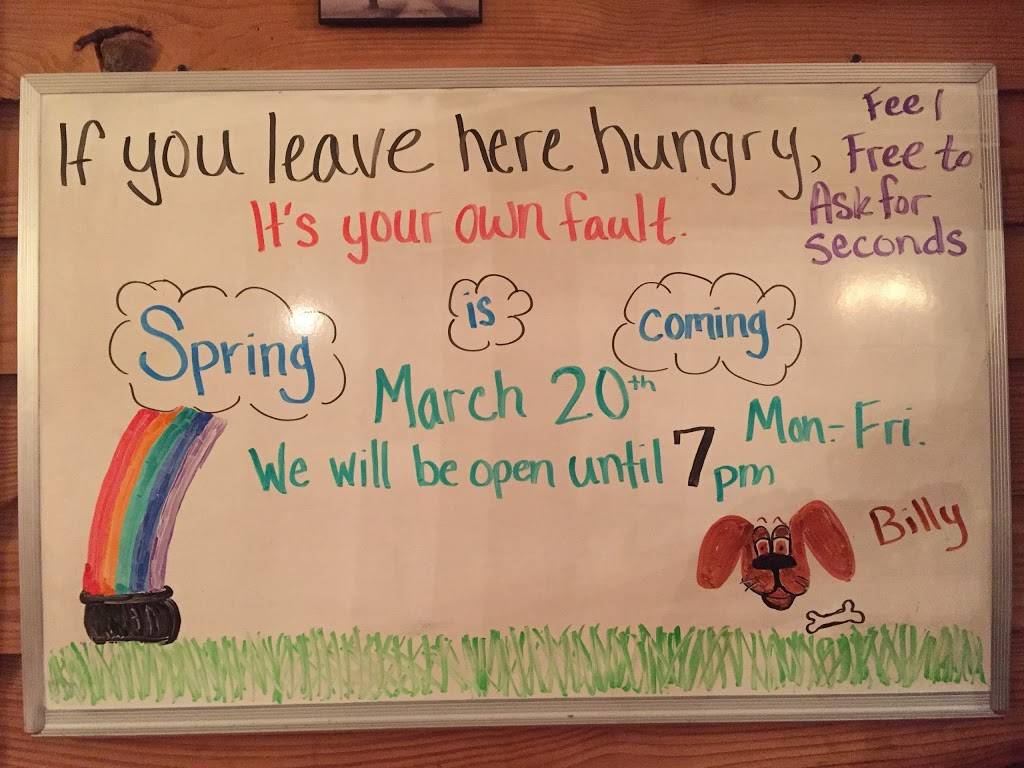 If you leave here hungry,
It's your own fault.
Feel
Free to
Ask for
seconds
Spring is coming
March 20th
We will be open until 7pm
Mon.-Fri.
Billy